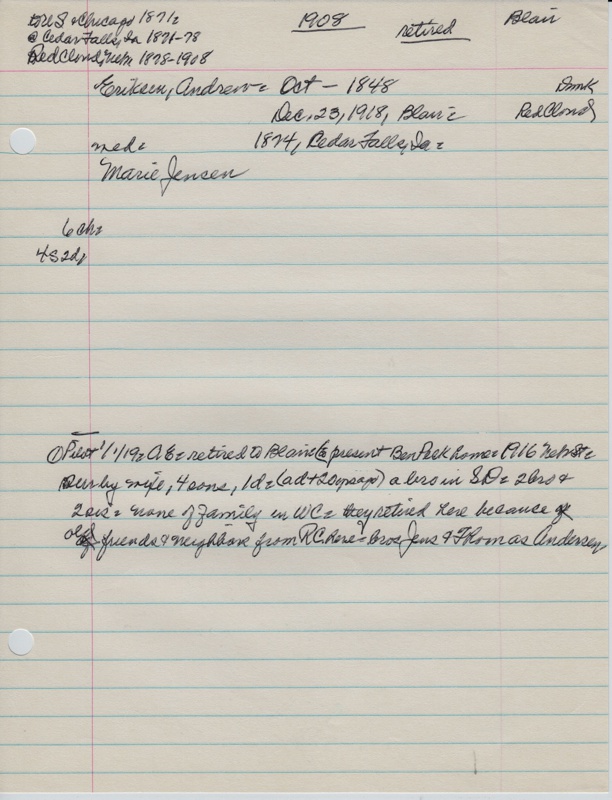 to US & Chicago 1871=
@ Cedar Falls, Ia 1871-78
Red Cloud, Neb 1878-1908
1908
retired
Blair
Eriksen, Andrew = Oct - 1848
Dmk
Dec, 23, 1918, Blair =
Red Cloud,
med = 1874, Cedar Falls, Ia =
Marie Jensen
6 ch=
4 s 2 d,
① Pilot 1/1/19 = AE = retired to Blair (@ present Ben Peck home = 1916 Neb St =
Sur by wife, 4 sons, 1 d = (a d + 20 yrs ago) a bro in SD = 2 bro &
2 sis = none of family in WC = they retired here because of
old friends & neighbors from RC here = bros Jens & Thomas Andersen